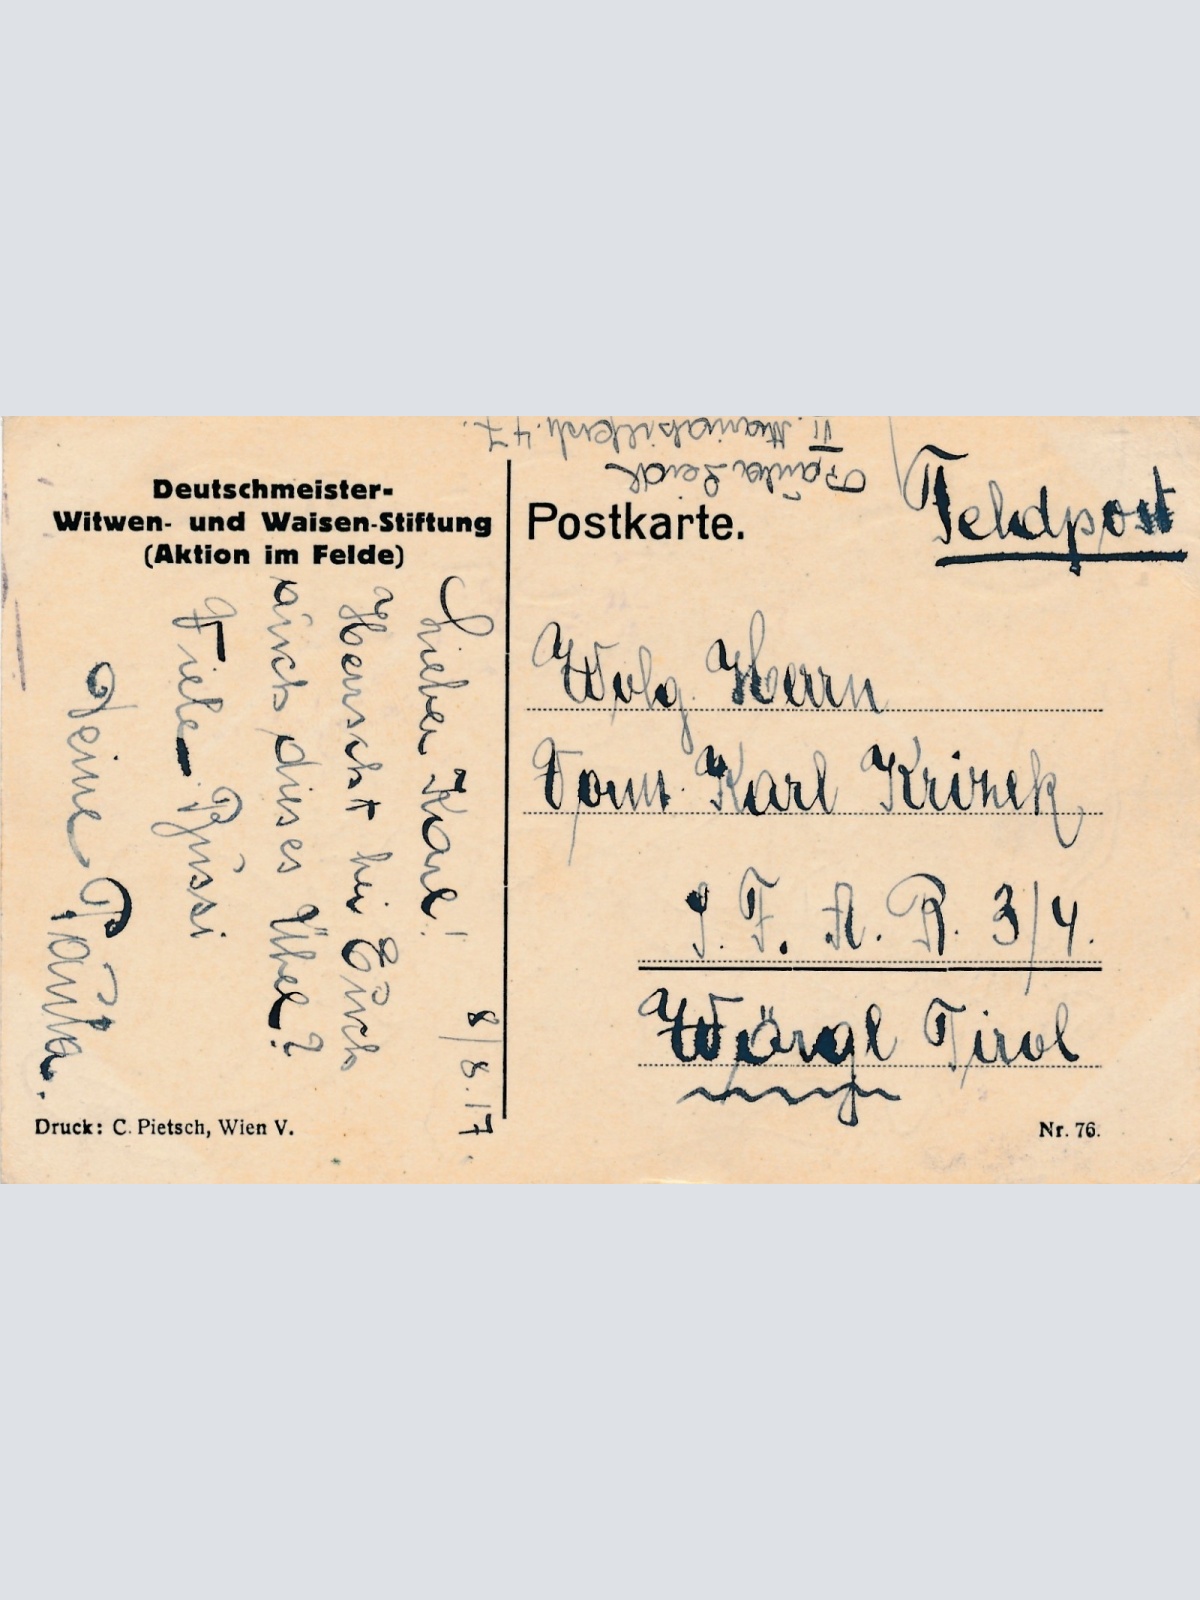 Deutschmeister-
Witwen- und Waisen-Stiftung
(Aktion im Felde)
8/8.17
Lieber Karl!
Herrscht bei Euch
auch dieses Übel?
Viele Bussi
Deine Paula.
Druck: C. Pietsch, Wien V.
Paula
VI. 47.
Postkarte.
Feldpost
Wolg. Herrn
Vorm. Karl Krizek
F. A. R. 3/4.
Wörgl Tirol
Nr. 76.